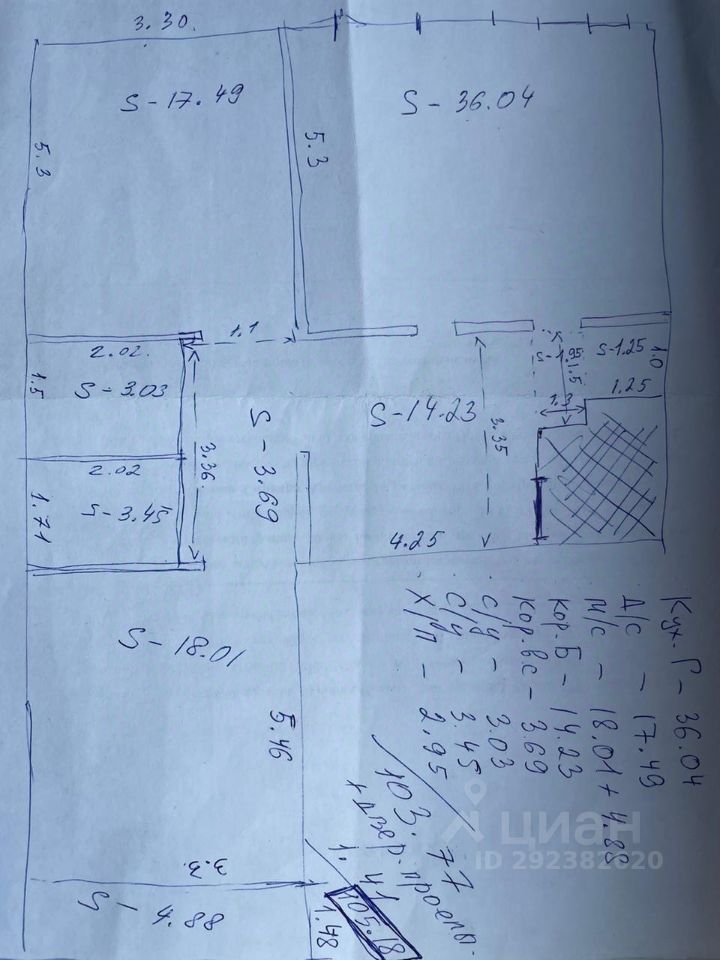 3.30.
S-17.49
S-36.04
5.3
5.3
1.1
2.02.
S-3.03
1.5
3.36
S-3.69
S-14.23
3.35
S-1.95
1.5
1.3
S-1.25
1.0
1.25
2.02
S-3.45
1.71
4.25
S-18.01
5.46
3.3
S-4.88
1.48
Кух. Г - 36.04
Д/С - 17.49
М/С - 18.01 + 4.88
Кор. Б - 14.23
Кор. ВС - 3.69
С/У - 3.03
С/У - 3.45
Х/П - 2.95
103.77
+ двер. проемы.
1.41
105.18
циан
ID 292382620